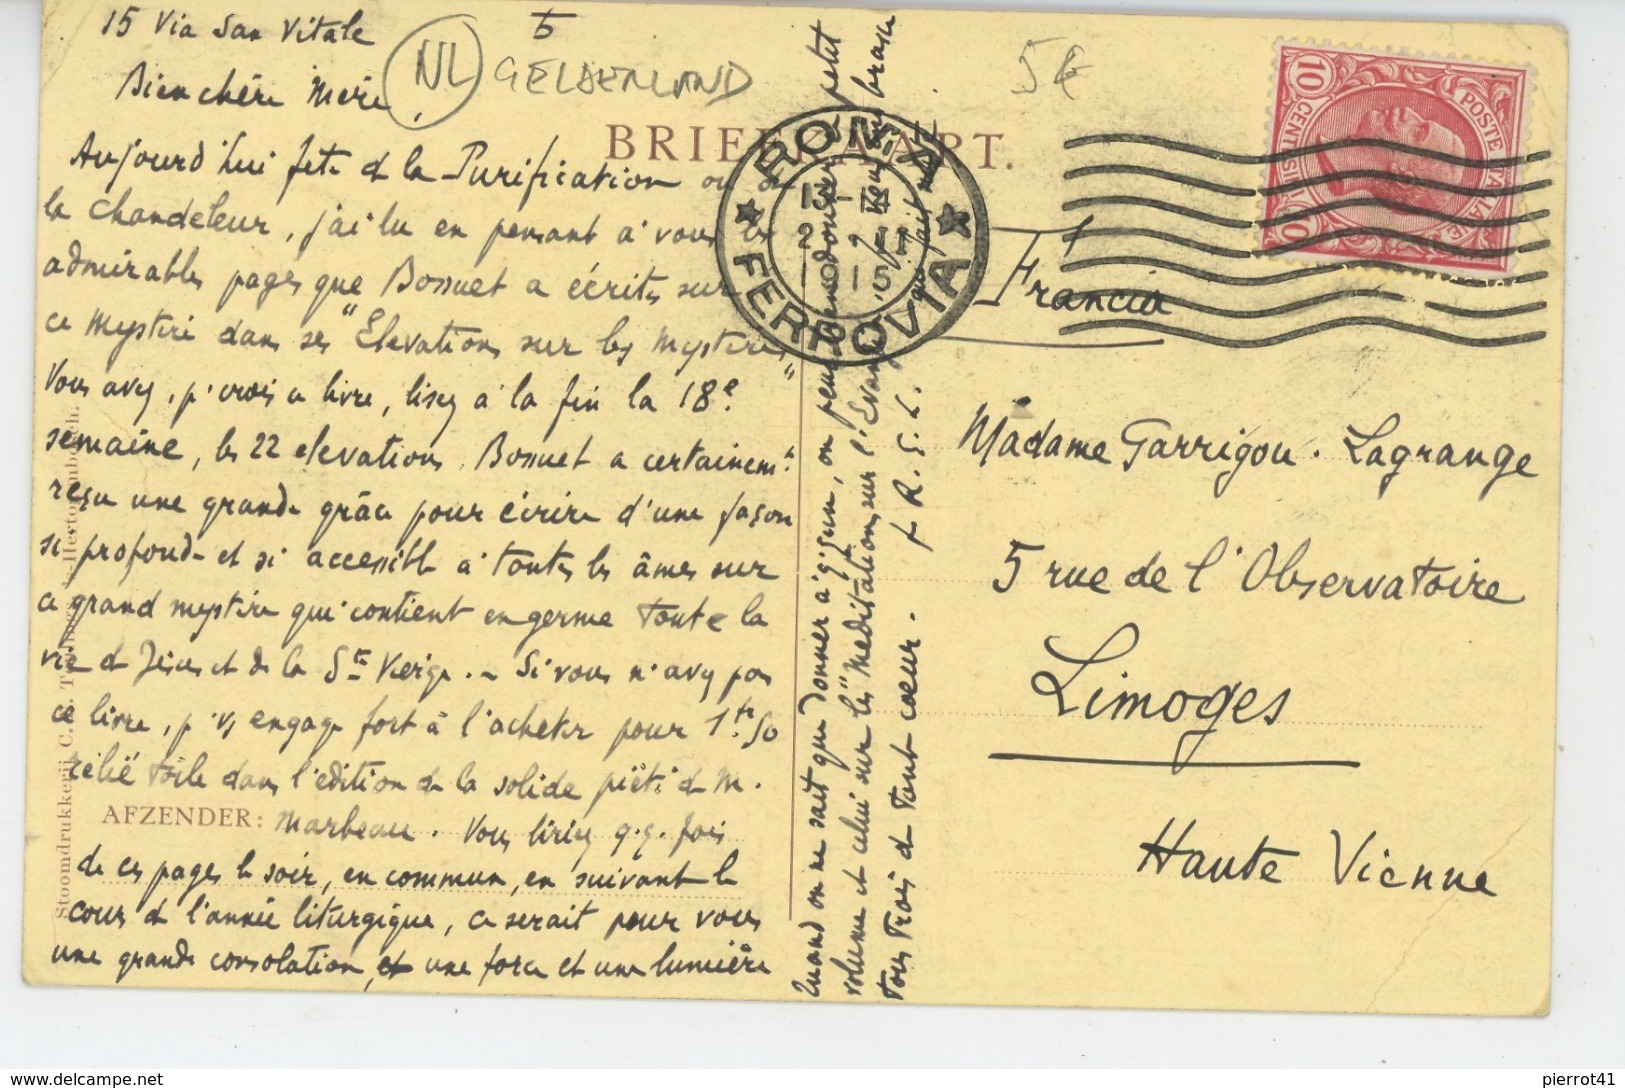 15 Via San Vitale
NL GELDERLAND
5
5€
Bien chère Mère,
BRIEFKAART.
Aujourd'hui fête de la Purification ou de
la chandeleur, j'ai lu en pensant à vous les
admirables pages que Bossuet a écrites sur
ce mystère dans ses "Elevations sur les Mystères"
Vous avez, je crois ce livre, lisez à la fin la 18e
semaine, les 22 elevations. Bossuet a certainemt
reçu une grande grâce pour écrire d'une façon
si profonde et si accessible à toutes les âmes sur
ce grand mystère qui contient en germe toute la
vie de Jésus et de la Ste Vierge. - Si vous n'avez pas
ce livre, je vs engage fort à l'acheter pour 1fr 50
relié toile dans l'édition de la solide piété de M.
AFZENDER: Marbeau. Vous liriez q.q. fois
de ces pages le soir, en commun, en suivant le
cours de l'année liturgique, ce serait pour vous
une grande consolation, et une force et une lumière
Quand on ne sait que donner à qqun, on peut donner ce petit
volume et celui sur les "Meditations sur l'Evangile". Je vous embrasse
tous trois de tout coeur. fr R. G. L.
qui fait
ROMA
13-14
2 2
1915
FERROVIA
POSTE ITALIANE
CENTESIMI
10
10
Francia
Madame Garrigou-Lagrange
5 rue de l'Observatoire
Limoges
Haute Vienne
Stoomdrukkerij C.
pierrot41